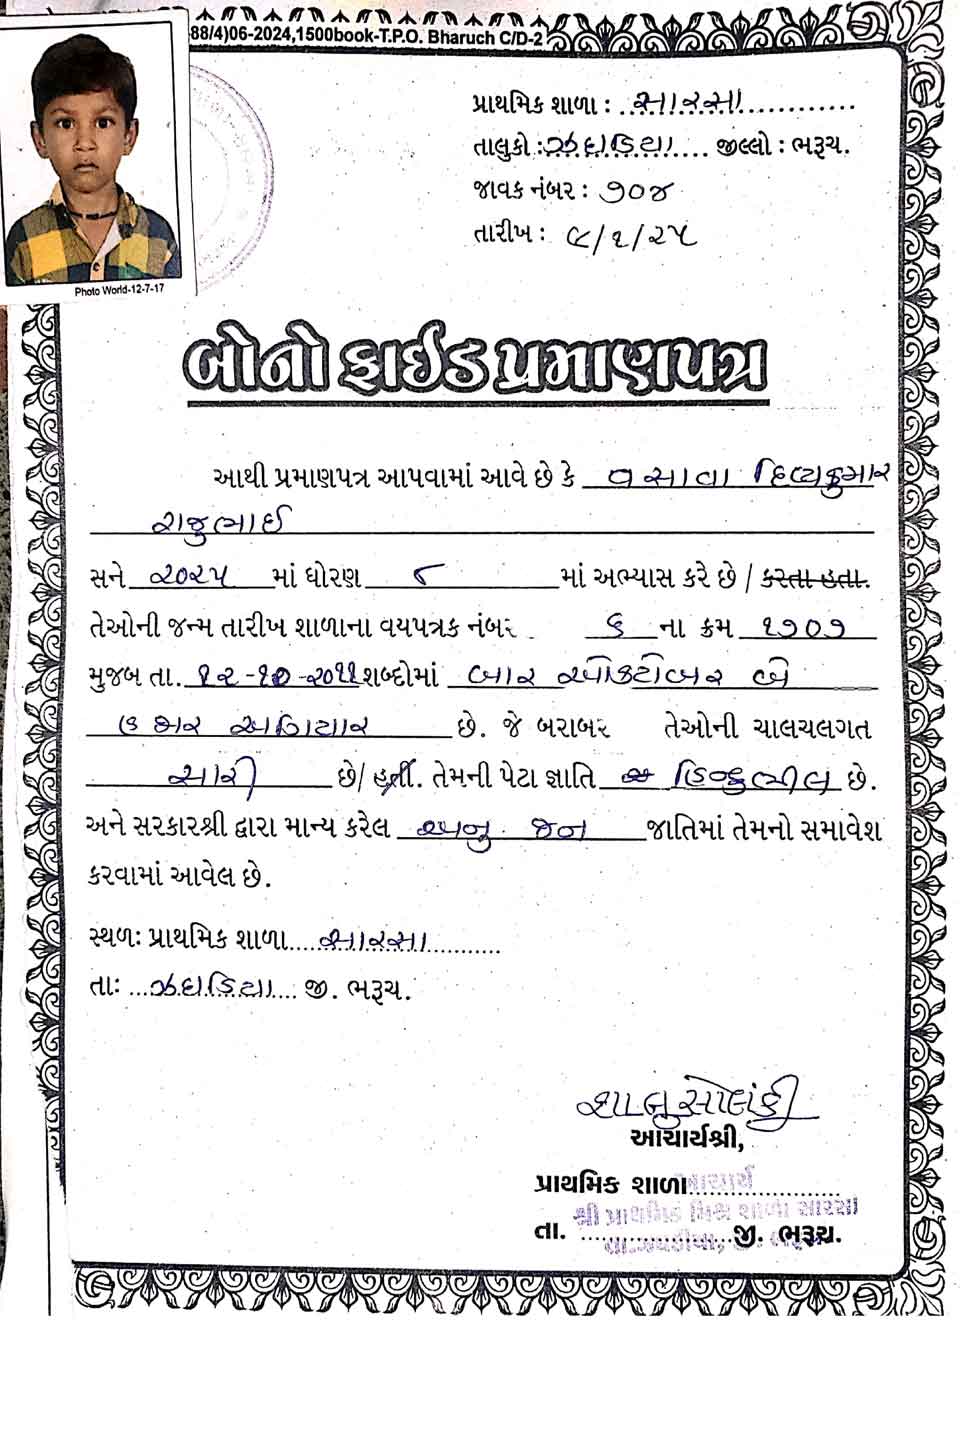 88/4)06-2024,1500book-T.P.O. Bharuch C/D-2
Photo World-12-7-17
પ્રાથમિક શાળા : સારસા
તાલુકો : ઝઘડિયા જીલ્લો : ભરૂચ.
જાવક નંબર : ૭૦૪
તારીખ : ૯/૧/૨૫
બોનોફાઈડ પ્રમાણપત્ર
આથી પ્રમાણપત્ર આપવામાં આવે છે કે વસાવા દિવ્યકુમાર
રાજુભાઈ
સને ૨૦૨૫ માં ધોરણ ૮ માં અભ્યાસ કરે છે / કરતા હતા.
તેઓની જન્મ તારીખ શાળાના વયપત્રક નંબર ૬ ના ક્રમ ૧૭૦૭
મુજબ તા. ૧૨-૧૦-૨૦૧૧ શબ્દોમાં બાર ઓક્ટોબર બે
હજાર અગિયાર છે. જે બરાબર તેઓની ચાલચલગત
સારી છે/ હતી. તેમની પેટા જ્ઞાતિ હિન્દુભીલ છે.
અને સરકારશ્રી દ્વારા માન્ય કરેલ અનુ. જન જાતિમાં તેમનો સમાવેશ
કરવામાં આવેલ છે.
સ્થળ: પ્રાથમિક શાળા સારસા
તા: ઝઘડિયા જી. ભરૂચ.
આચાર્યશ્રી,
પ્રાથમિક શાળા
આચાર્ય
શ્રી પ્રાથમિક મિશ્ર શાળા સારસા
તા. જી. ભરૂચ.